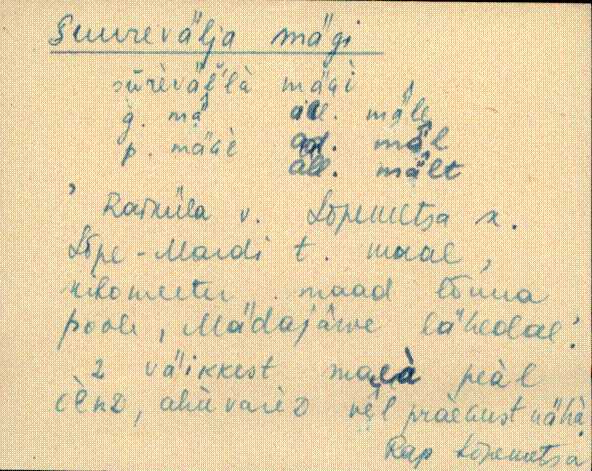 Suurevälja mägi
sūrèväl'là mäǵì
g. mä͕̂ ill. mäle
p. mäǵè ad. mäl
all. mält
Raikküla v. Lõpemetsa k.
Lõpe-Mardi t. maal,
kilomeeter maad lõuna
poole, Mädajärve lähedal.
2 väikkest peàl
, ahievareD vèl praeɢust nähà
Rap Lõpemetsa